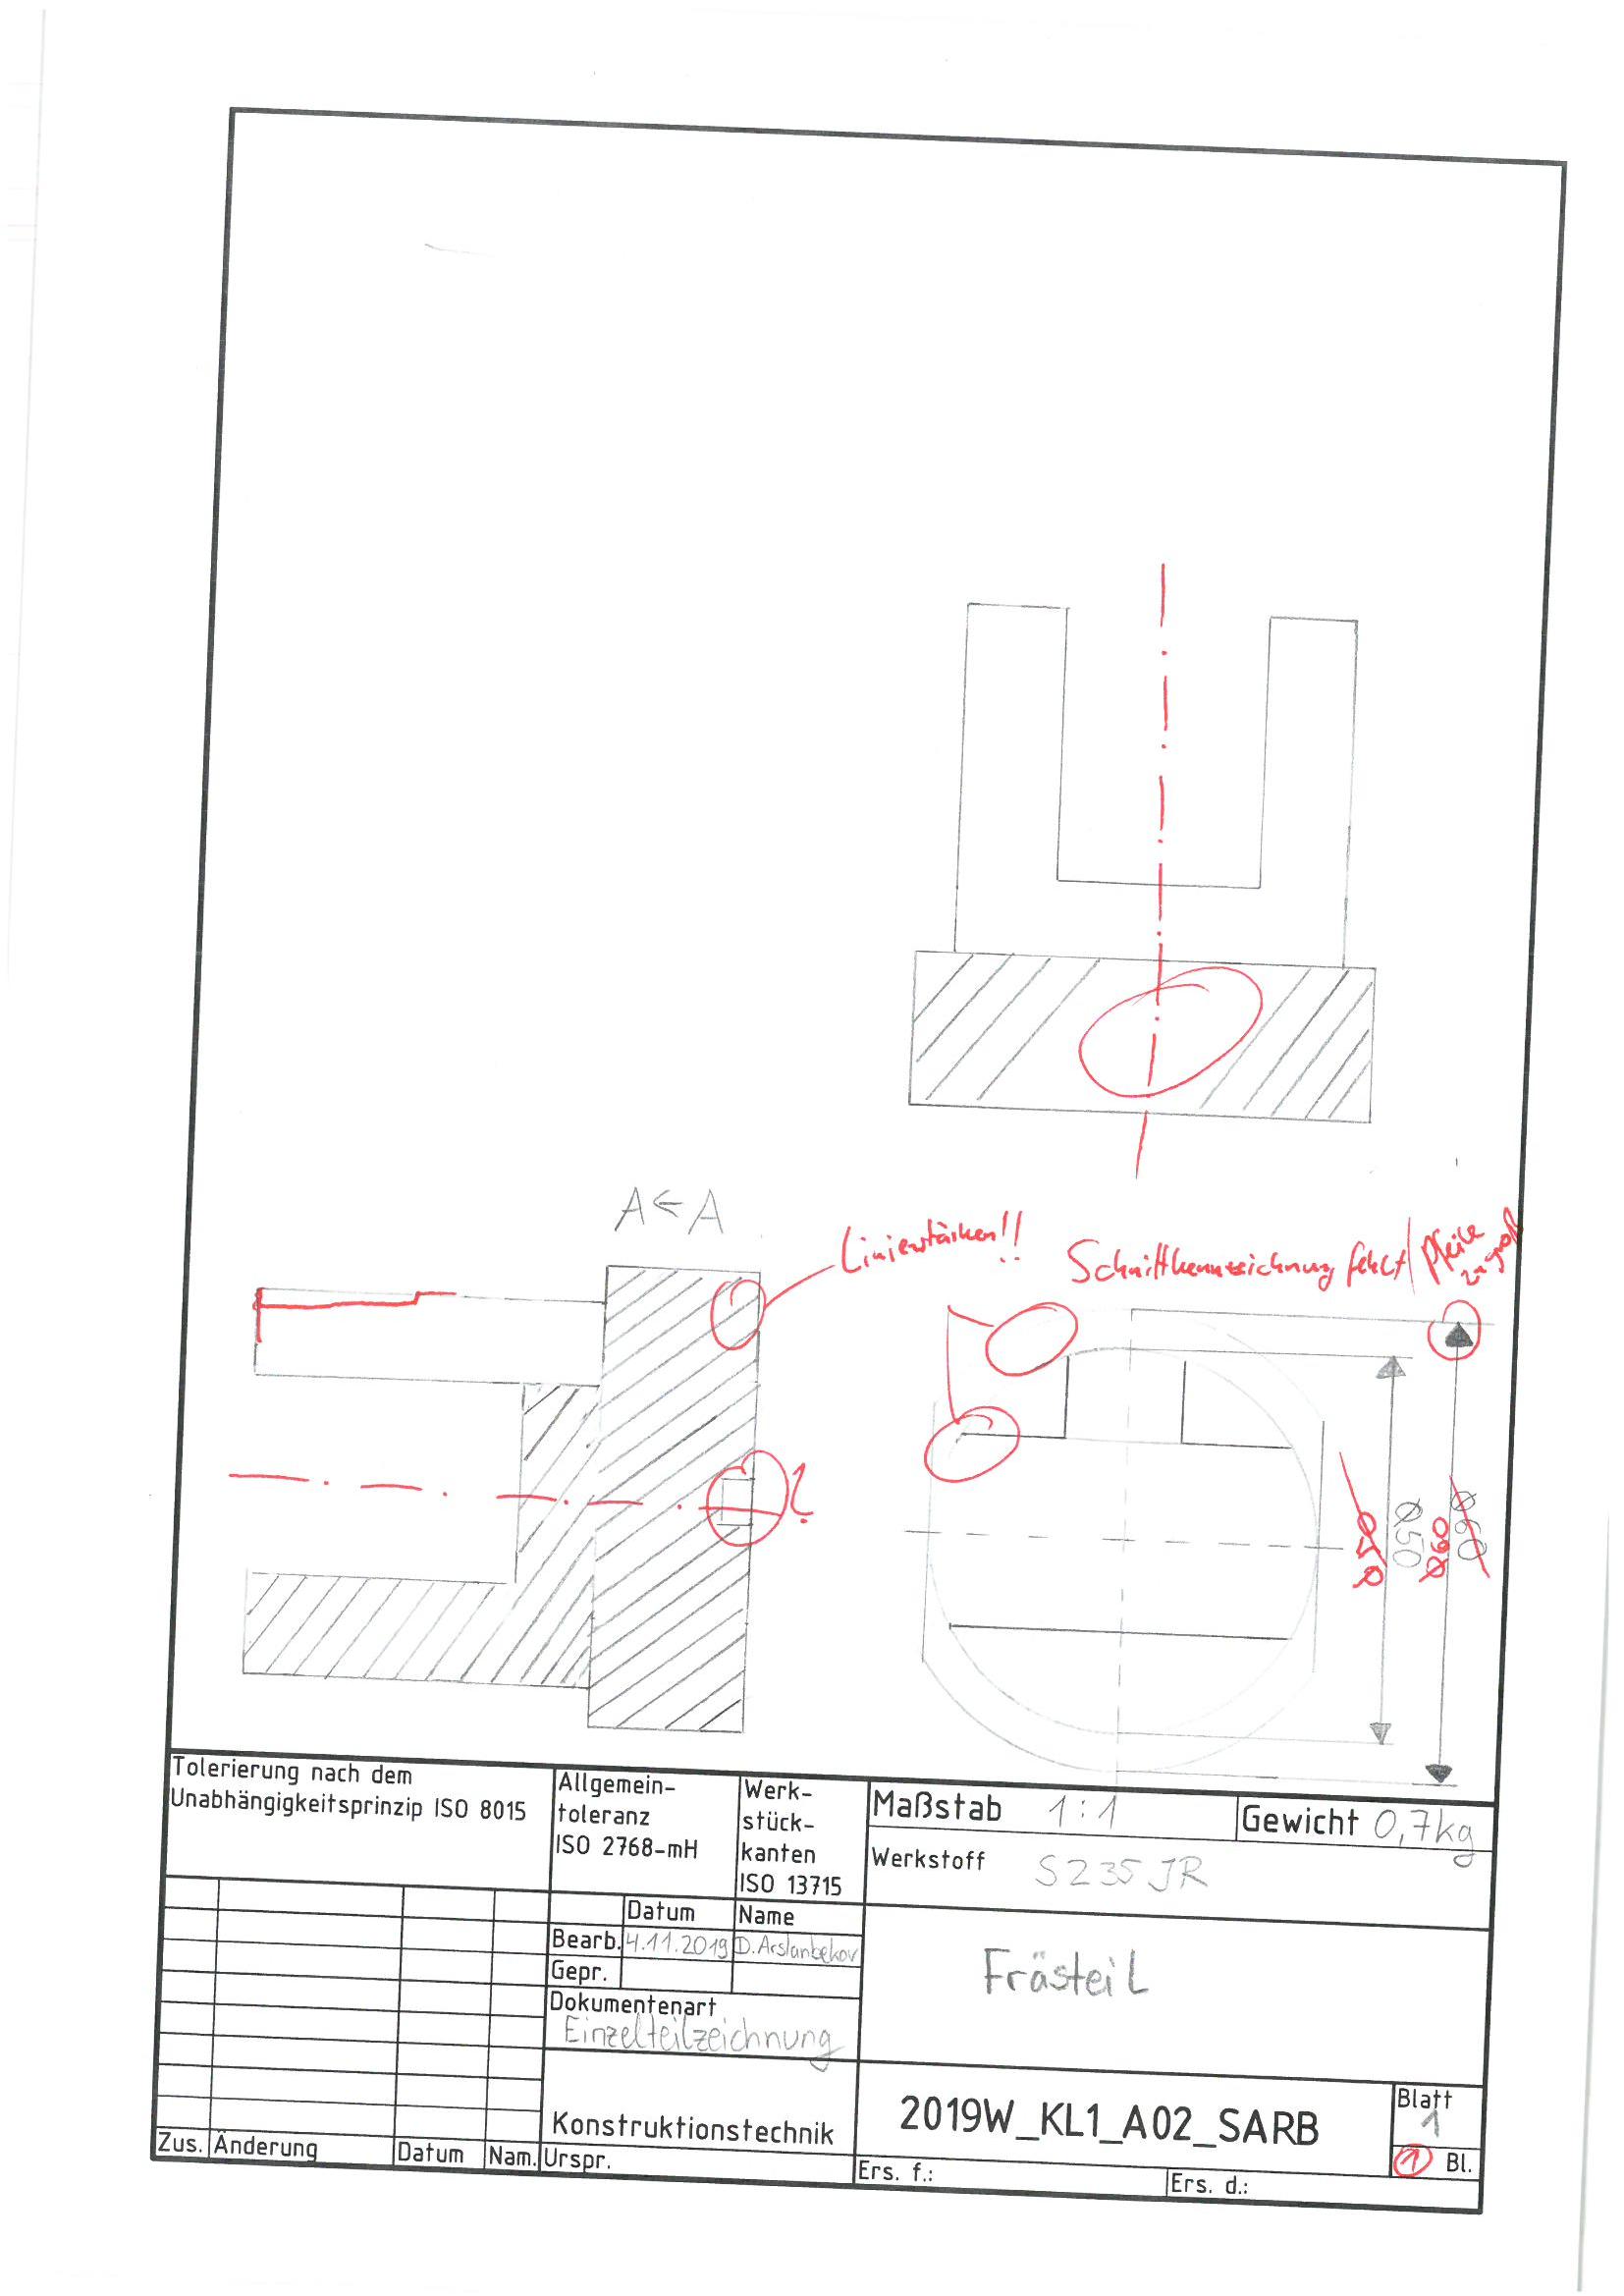 A < A
Linienstärken!!
Schnittkennzeichnung fehlt / Pfeile
zu groß
Ø50
Ø50
Ø60
Ø60
?
Tolerierung nach dem
Unabhängigkeitsprinzip ISO 8015
Allgemein-
toleranz
ISO 2768-mH
Werk-
stück-
kanten
ISO 13715
Maßstab 1:1
Gewicht 0,7kg
Werkstoff S235JR
Datum Name
Bearb. 4.11.2019 D.Arslanbekov
Gepr.
Dokumentenart
Einzelteilzeichnung
Frästeil
Konstruktionstechnik
2019W_KL1_A02_SARB
Blatt
1
1 Bl.
Zus. Änderung Datum Nam. Urspr.
Ers. f.:
Ers. d.: